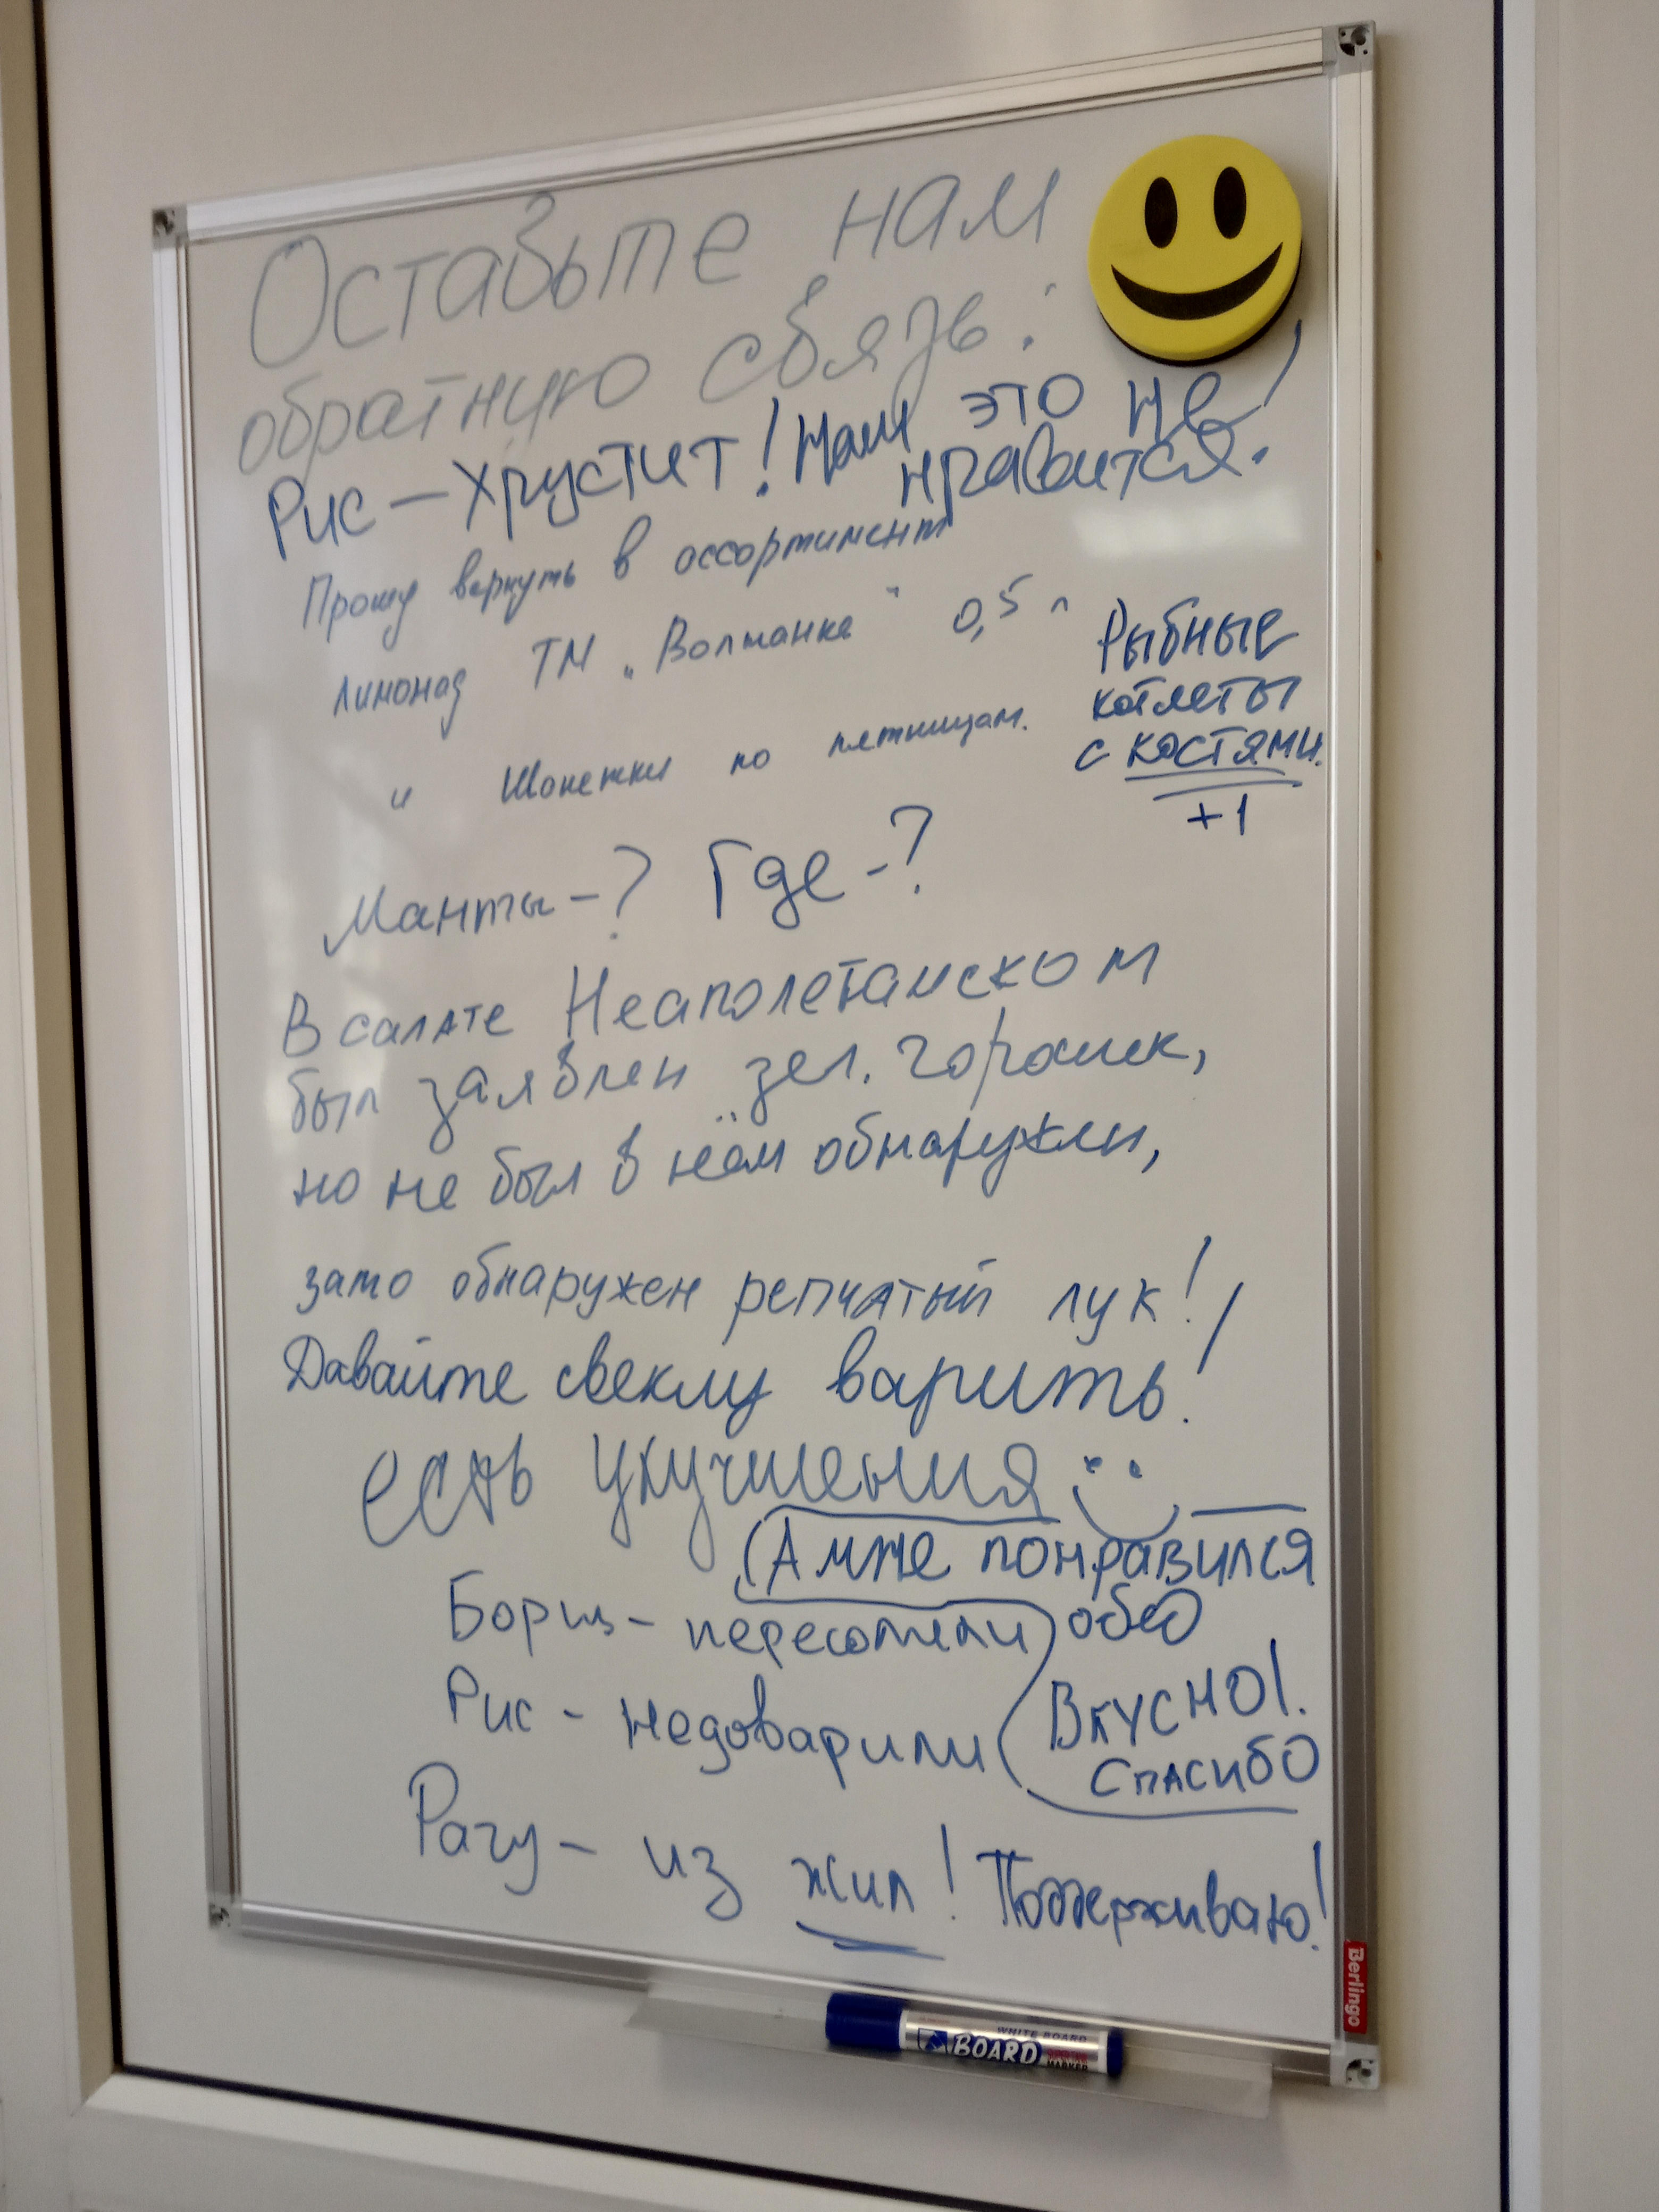 Оставьте нам
обратную связь:
Рис - Хрустит! Нам это не
нравится!
Прошу вернуть в ассортимент
лимонад ТМ „Волжанка" 0,5 л
и Шонежки по пятницам.
Рыбные
котлеты
с костями.
+1
Манты-? Где-?
В салате Неаполетанском
был заявлен зел. горошек,
но не был в нём обнаружен,
зато обнаружен репчатый лук!
Давайте свеклу варить!
есть улучшения
А мне понравился
обед
Вкусно!.
Спасибо
Борщ - пересолили
Рис - недоварили
Рагу - из жил! Поддерживаю!
Berlingo
WHITE BOARD
BOARD
MARKER